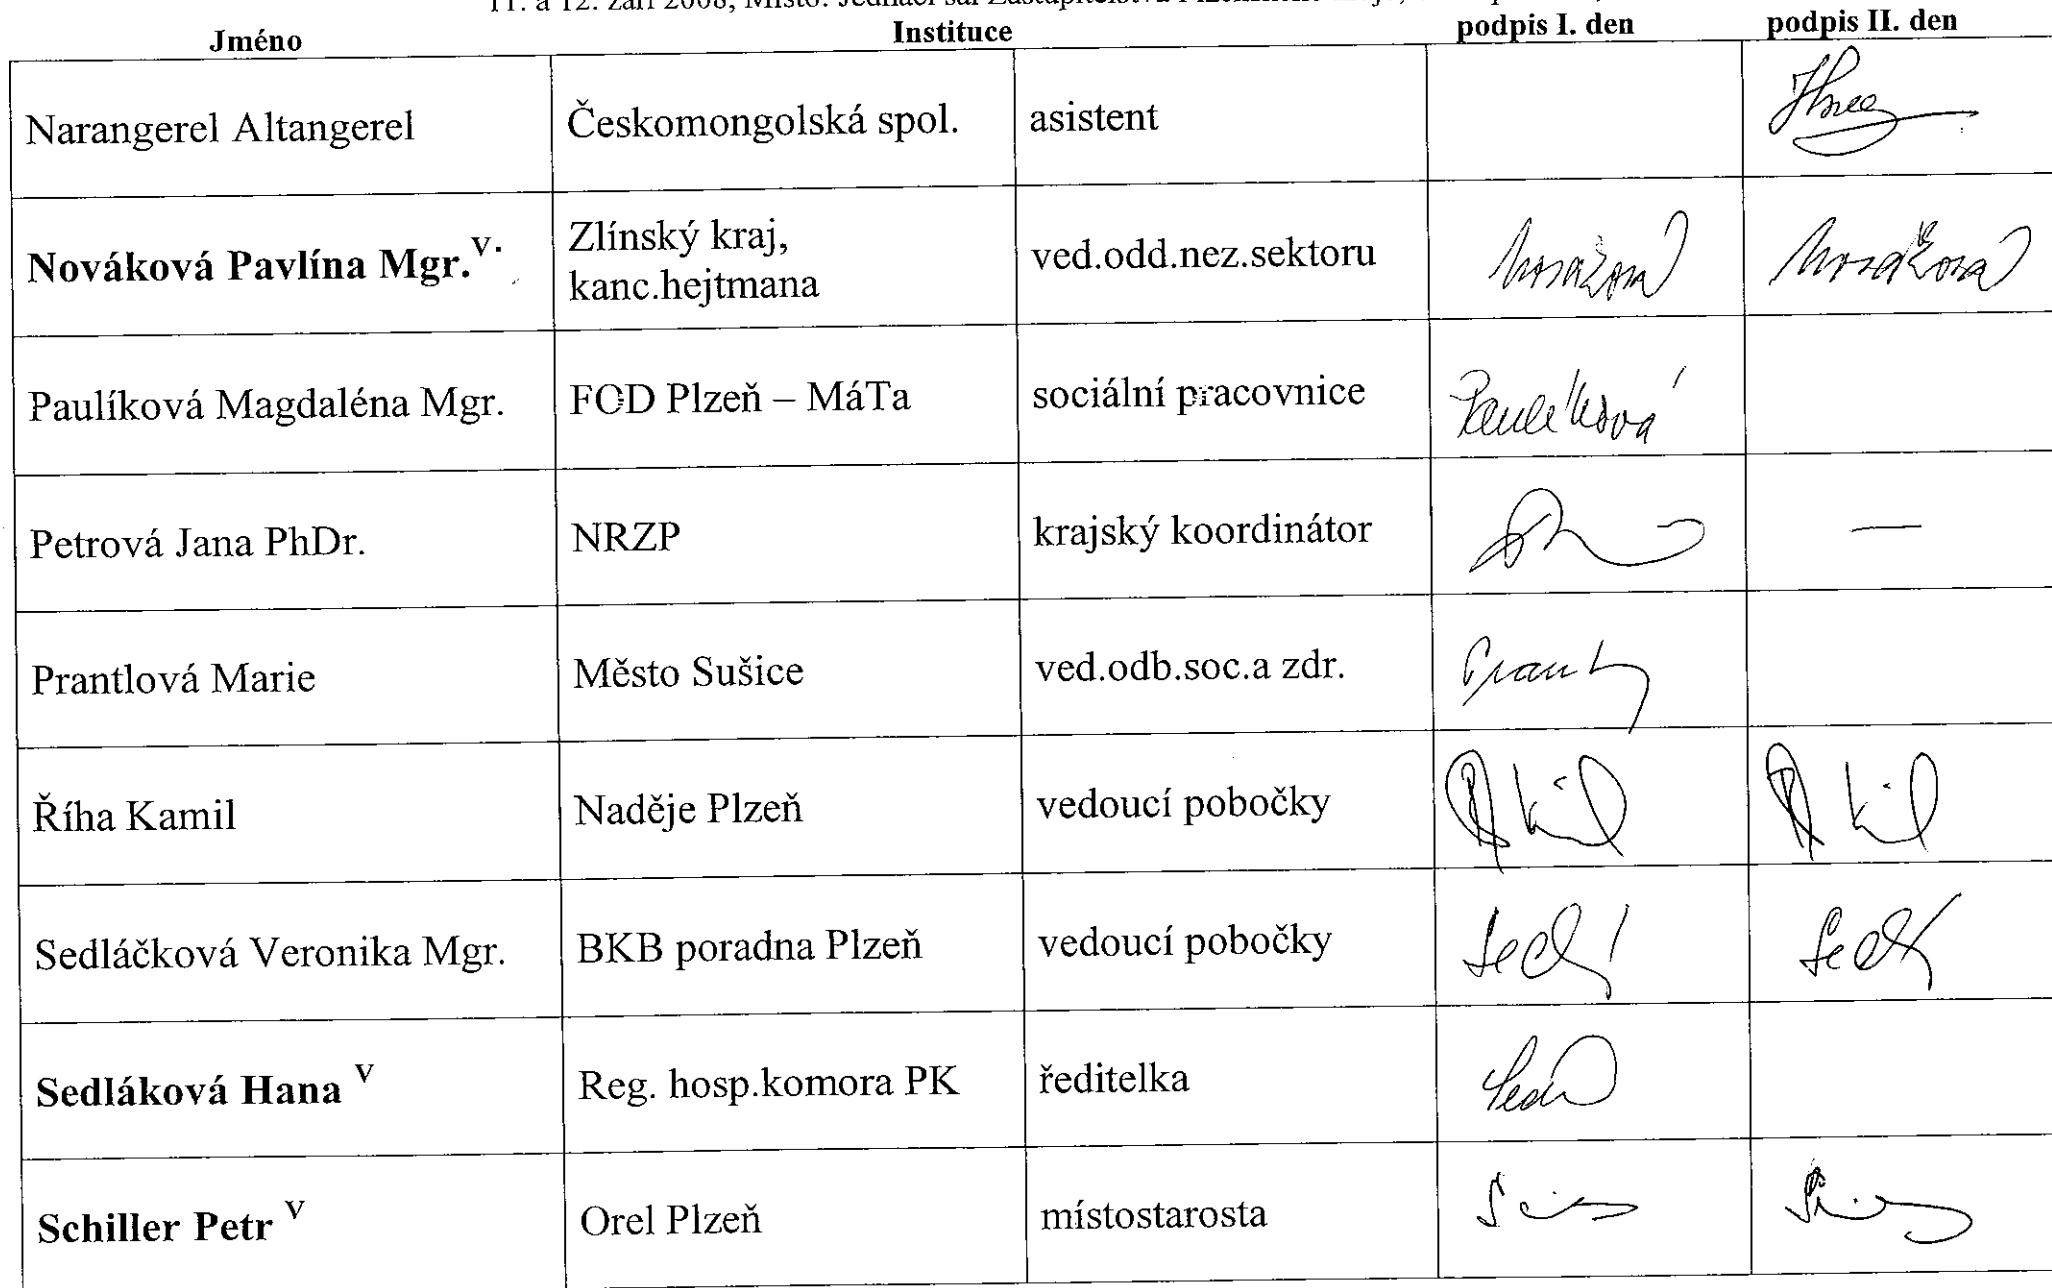 11. a 12. září 2008, Místo: Jednací sál Zastupitelstva Plzeňského kraje,
Jméno Instituce podpis I. den podpis II. den
Narangerel Altangerel Českomongolská spol. asistent
Nováková Pavlína Mgr. v. Zlínský kraj, kanc.hejtmana ved.odd.nez.sektoru Nováková Nováková
Paulíková Magdaléna Mgr. FOD Plzeň – MáTa sociální pracovnice Paulíková
Petrová Jana PhDr. NRZP krajský koordinátor —
Prantlová Marie Město Sušice ved.odb.soc.a zdr.
Říha Kamil Naděje Plzeň vedoucí pobočky
Sedláčková Veronika Mgr. BKB poradna Plzeň vedoucí pobočky
Sedláková Hana v Reg. hosp.komora PK ředitelka
Schiller Petr v Orel Plzeň místostarosta